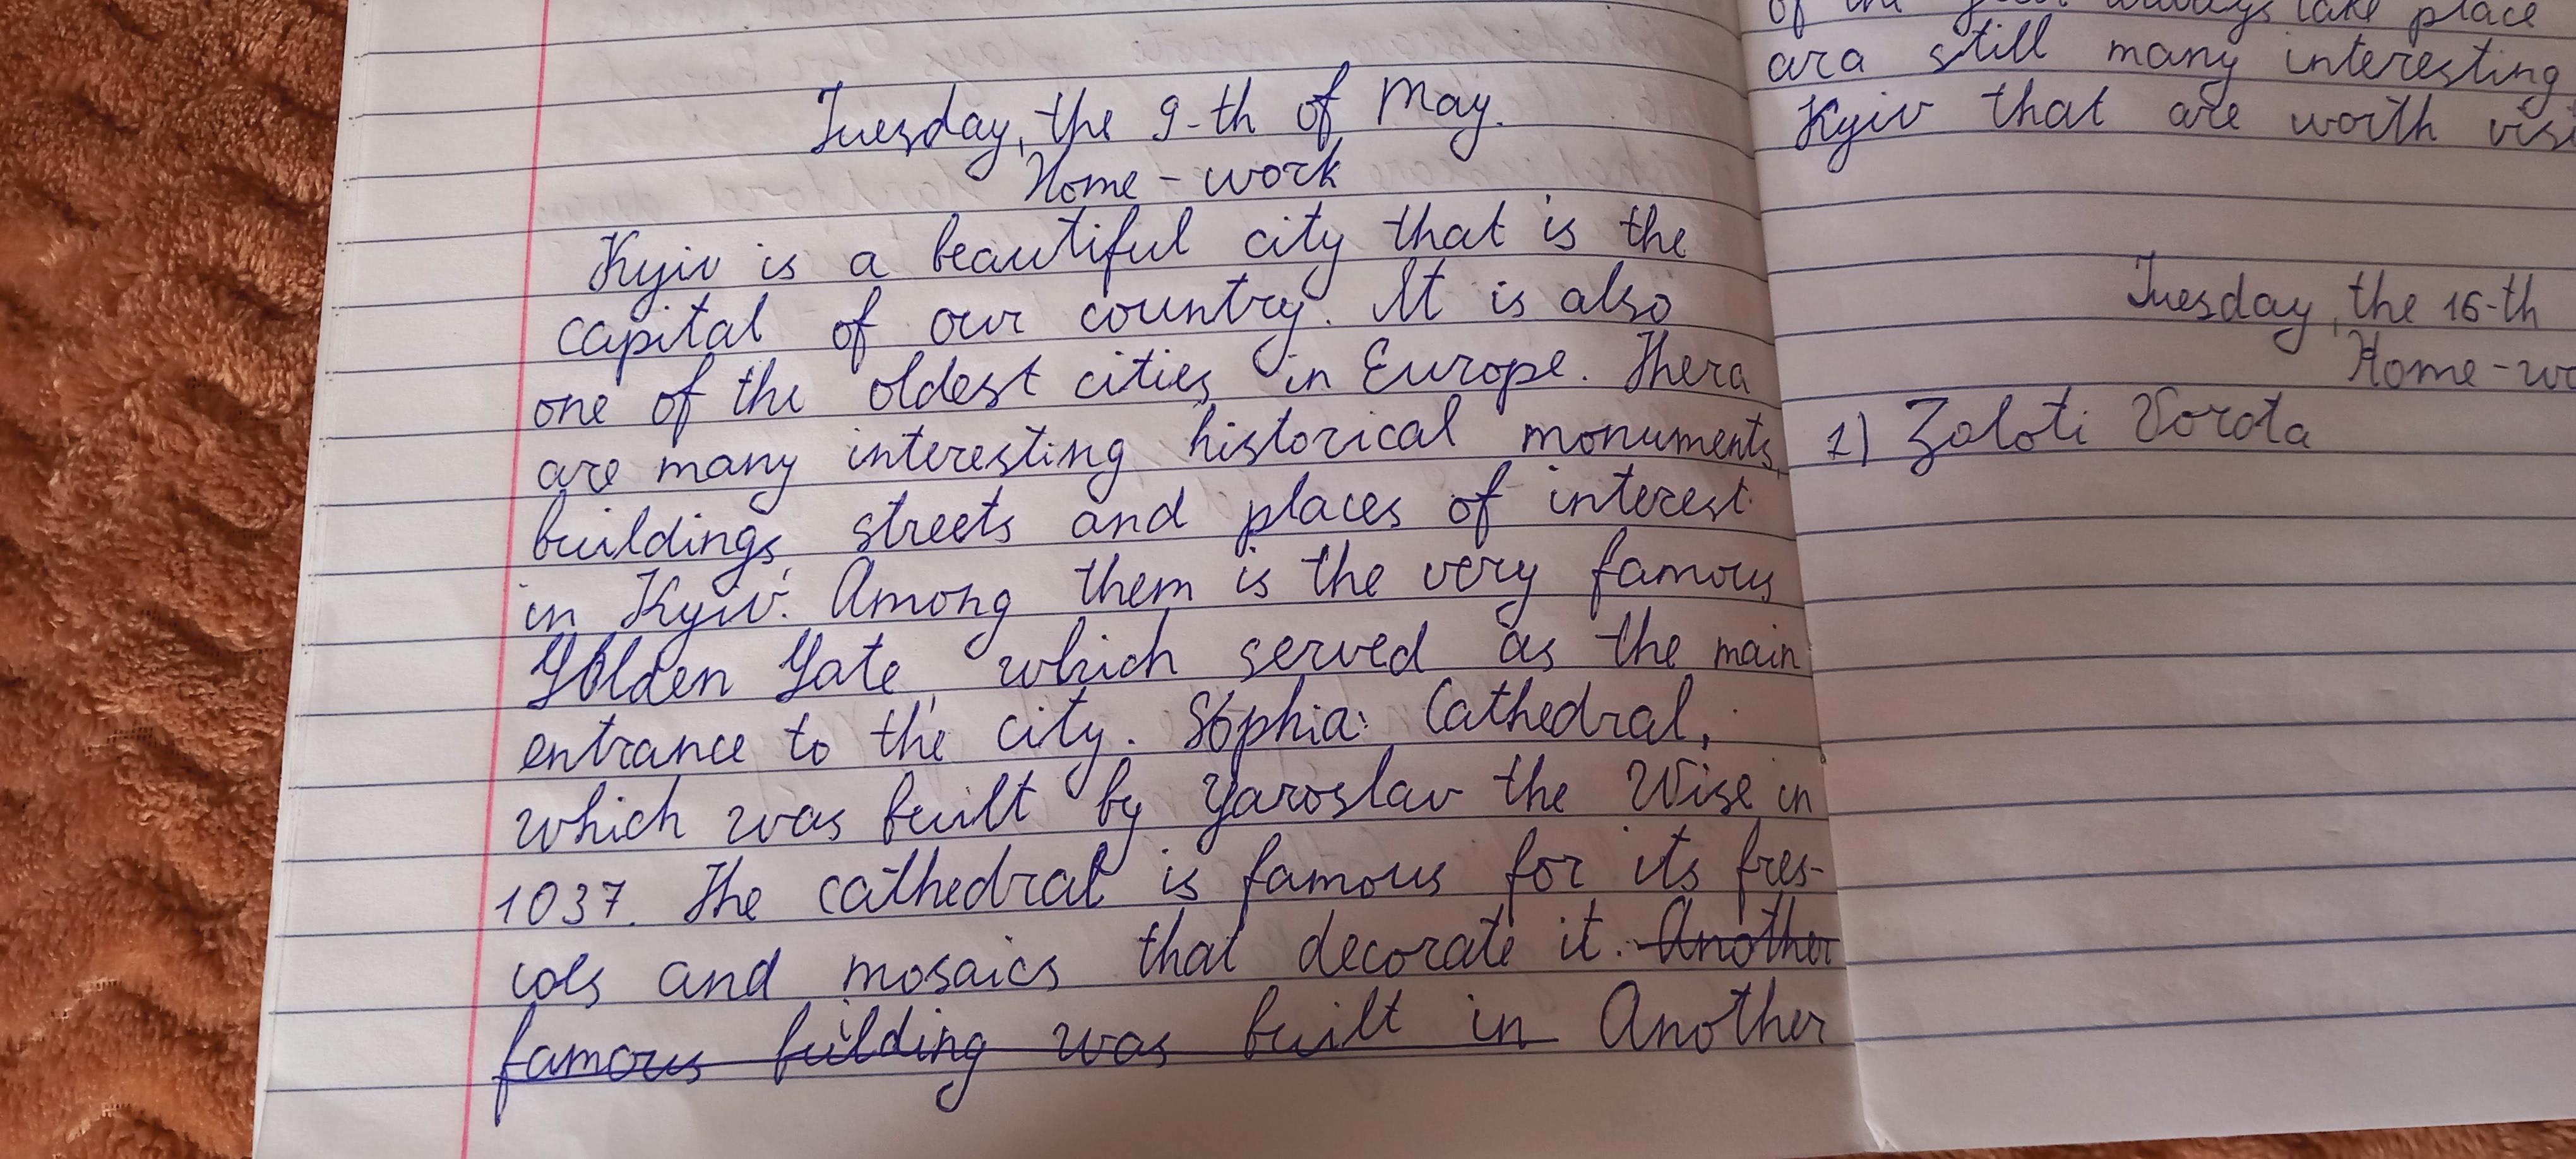 Tuesday, the 9-th of May.
Home-work
Kyiv is a beautiful city that is the
capital of our country. It is also
one of the oldest cities in Europe. Thera
are many interesting historical monuments,
buildings, streets and places of interest
in Kyiv. Among them is the very famous
Golden Gate, which served as the main
entrance to the city. Sophia Cathedral,
which was built by Yaroslav the Wise in
1037. The cathedral is famous for its fres-
coes and mosaics that decorate it. Another
famous building was built in Another
of the year always take place
ara still many interesting
Kyiv that are worth
Tuesday, the 16-th
Home-wo
1) Zoloti Vorota